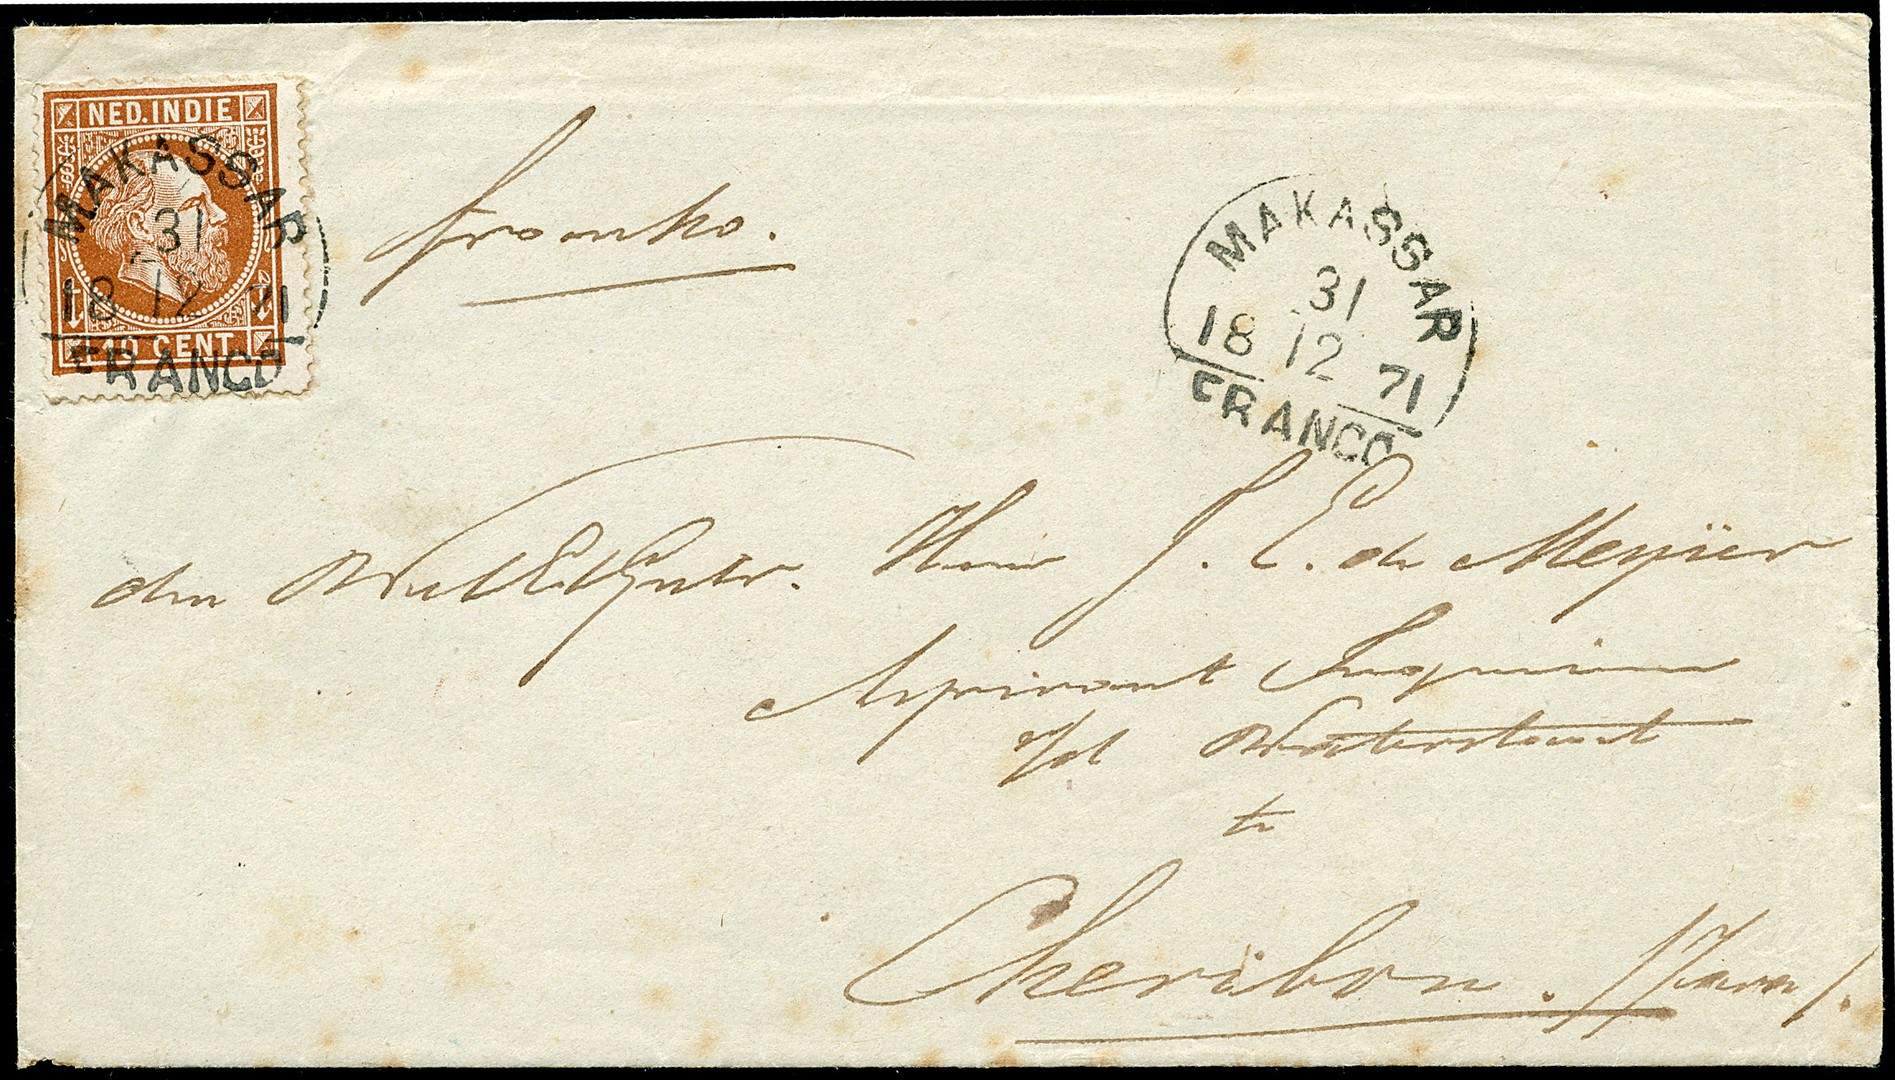 NED.INDIE
10 CENT
MAKASSAR
31
18 12 71
FRANCO
franko.
MAKASSAR
31
18 12 71
FRANCO
den WelEdGestr. Heer J. E. de Meyïer
Aspirant Ingenieur
v/d Waterstaat
te
Cheribon. /Java/.